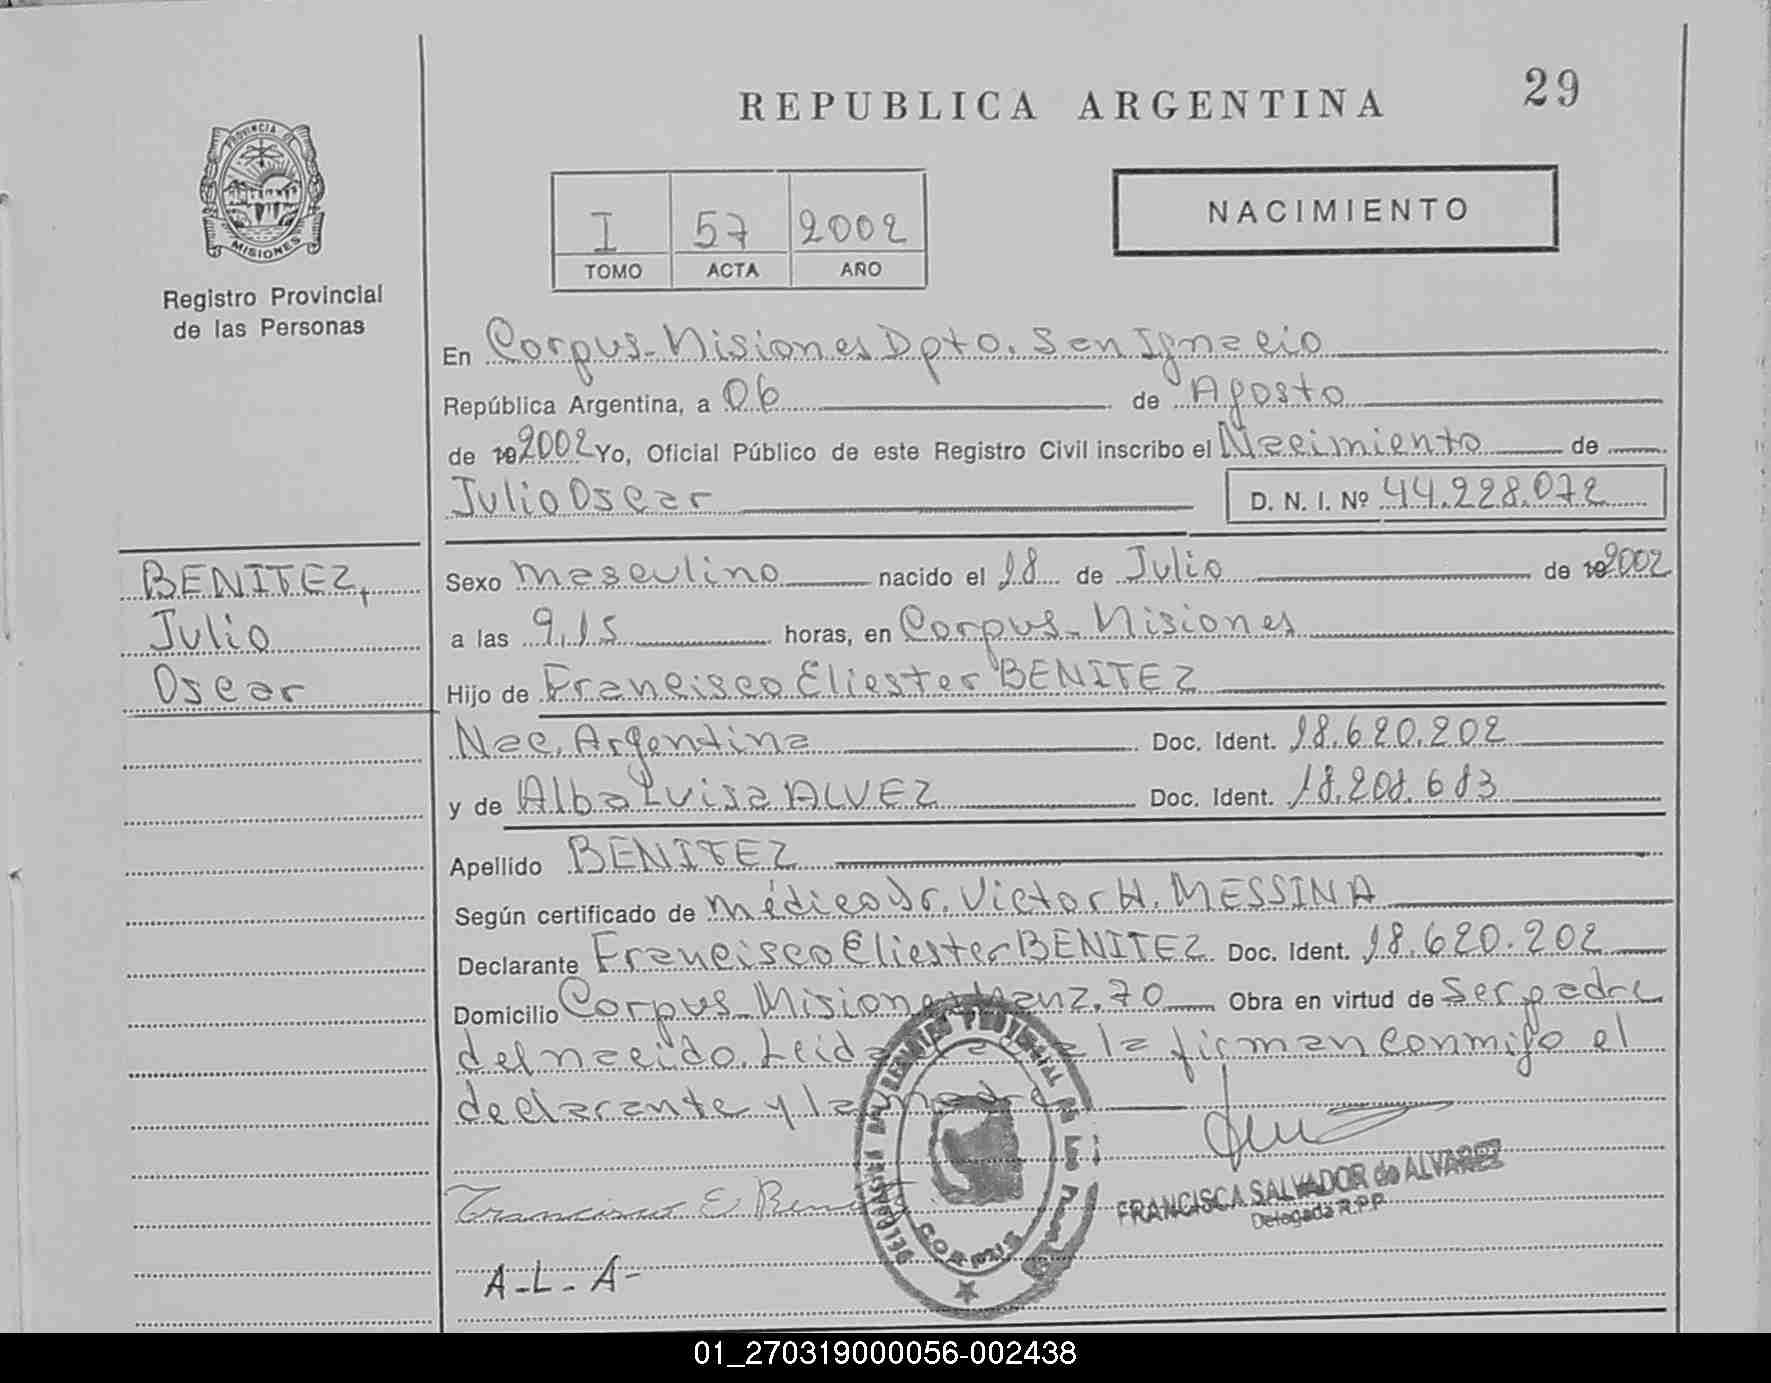 REPUBLICA ARGENTINA
29
PROVINCIA
MISIONES
Registro Provincial
de las Personas
I 57 2002
TOMO ACTA AÑO
NACIMIENTO
En Corpus-Misiones Dpto. San Ignacio
República Argentina, a 06 de Agosto
de 19 2002 Yo, Oficial Público de este Registro Civil inscribo el Nacimiento de
Julio Oscar D. N. I. Nº 44.228.072
BENITEZ,
Julio
Oscar
Sexo masculino nacido el 18 de Julio de 19 2002
a las 9,15 horas, en Corpus-Misiones
Hijo de Francisco Eliester BENITEZ
Nac. Argentina Doc. Ident. 18.620.202
y de Alba Luisa ALVEZ Doc. Ident. 18.208.683
Apellido BENITEZ
Según certificado de médico Dr. Victor H. MESSINA
Declarante Francisco Eliester BENITEZ Doc. Ident. 18.620.202
Domicilio Corpus-Misiones Manz. 70 Obra en virtud de Ser padre
del nacido. Leida la firman conmigo el
declarante y la madre
Francisco E Beni
FRANCISCA SALVADOR de ALVAREZ
Delegada R.P.P.
A-L-A-
CORPUS
01_270319000056-002438